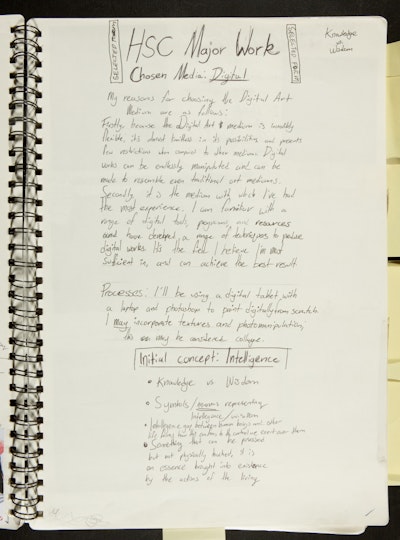 SELECTED FORM
HSC Major Work
SELECTED FORM
Knowledge
vs
Wisdom
Chosen Media: Digital
My reasons for choosing the Digital Art
Medium are as follows:
Firstly because the Digital Art medium is incredibly
flexible, its almost limitless in its possibilities and presents
few restrictions when compared to other mediums. Digital
works can be endlessly manipulated and can be
made to resemble even traditional art mediums.
Secondly it is the medium with which I've had
the most experience. I am familiar with a
range of digital tools, programs, and resources
and have developed a range of techniques to produce
digital works. It's the field I believe I'm most
sufficient in, and can achieve the best result.
Processes: I'll be using a digital tablet with
a laptop and photoshop to paint digitally from scratch.
I may incorporate textures and photomanipulation,
may be considered collage.
Initial concept: Intelligence
• Knowledge vs Wisdom
• Symbols / representing
Intelligence / wisdom
• Intelligence gap between human beings and other
life forms, how this pertains to the control we exert over them
• Something that can be pursued
but not physically touched, it is
an essence brought into existence
by the actions of the living